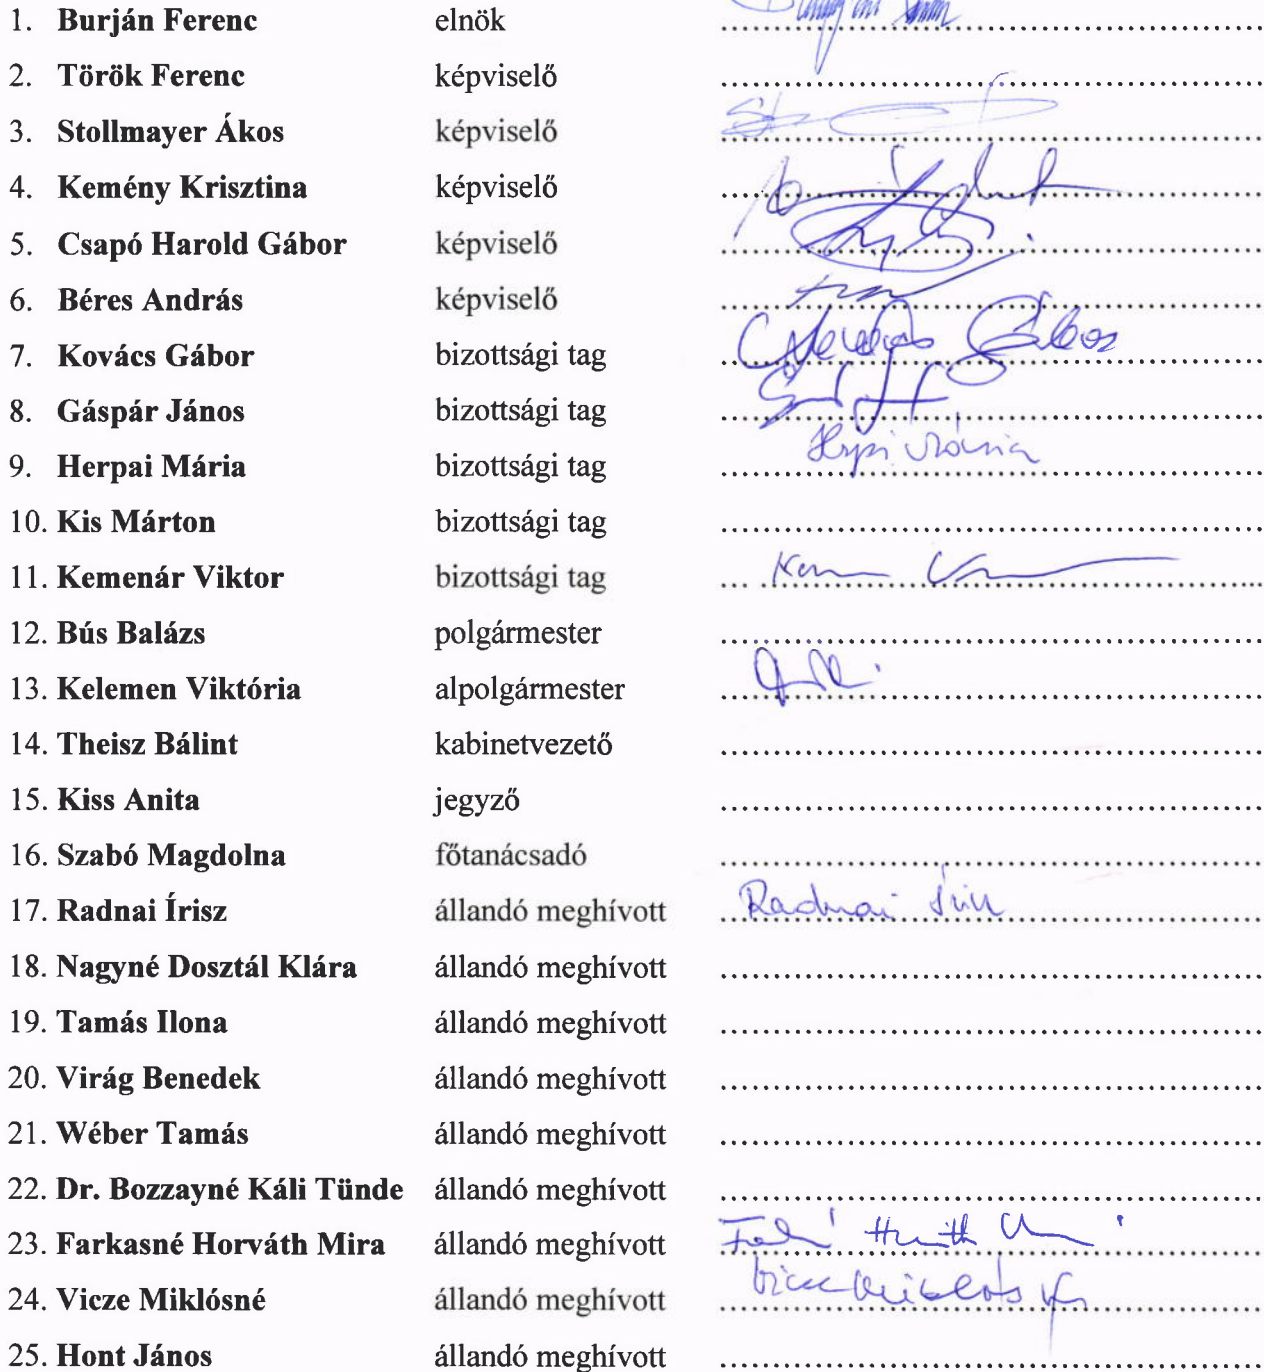 1. Burján Ferenc elnök
2. Török Ferenc képviselő
3. Stollmayer Ákos képviselő
4. Kemény Krisztina képviselő
5. Csapó Harold Gábor képviselő
6. Béres András képviselő
7. Kovács Gábor bizottsági tag
8. Gáspár János bizottsági tag
9. Herpai Mária bizottsági tag
10. Kis Márton bizottsági tag
11. Kemenár Viktor bizottsági tag
12. Bús Balázs polgármester
13. Kelemen Viktória alpolgármester
14. Theisz Bálint kabinetvezető
15. Kiss Anita jegyző
16. Szabó Magdolna főtanácsadó
17. Radnai Írisz állandó meghívott Radnai
18. Nagyné Dosztál Klára állandó meghívott
19. Tamás Ilona állandó meghívott
20. Virág Benedek állandó meghívott
21. Wéber Tamás állandó meghívott
22. Dr. Bozzayné Káli Tünde állandó meghívott
23. Farkasné Horváth Mira állandó meghívott
24. Vicze Miklósné állandó meghívott
25. Hont János állandó meghívott